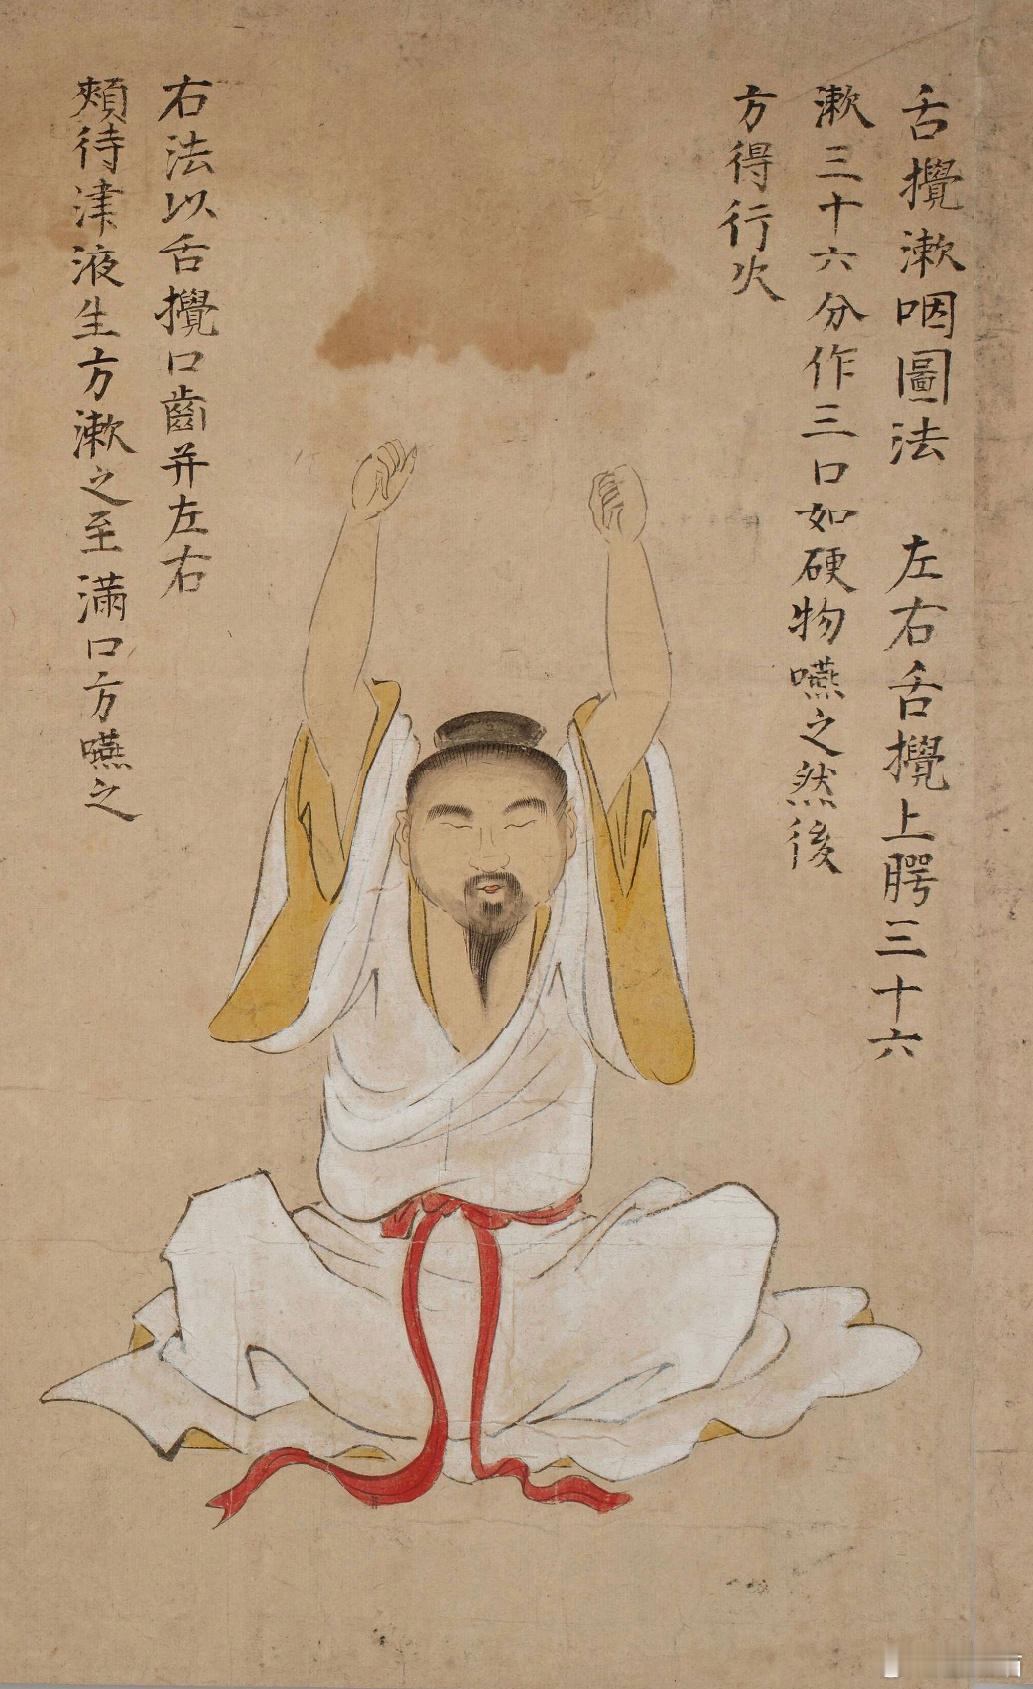 舌攪漱咽圖法　左右舌攪上腭三十六
漱三十六分作三口如硬物嚥之然後
方得行火
右法以舌攪口齒并左右
頰待津液生方漱之至滿口方嚥之